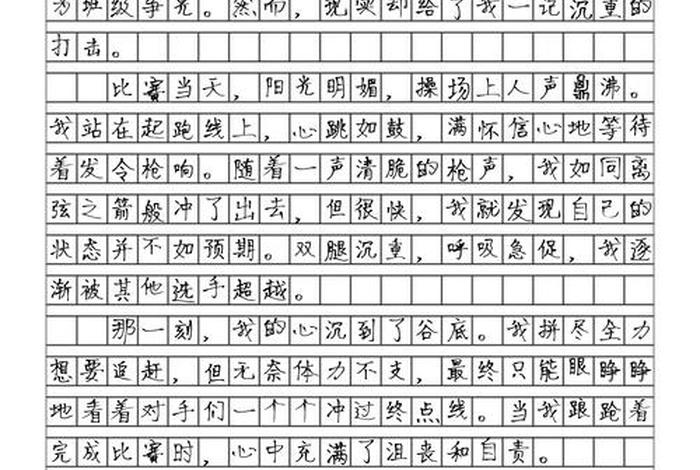 为班级争光。然而，现实却给了我一记沉重的
打击。
比赛当天，阳光明媚，操场上人声鼎沸。
我站在起跑线上，心跳如鼓，满怀信心地等待
着发令枪响。随着一声清脆的枪声，我如同离
弦之箭般冲了出去，但很快，我就发现自己的
状态并不如预期。双腿沉重，呼吸急促，我逐
渐被其他选手超越。
那一刻，我的心沉到了谷底。我拼尽全力
想要追赶，但无奈体力不支，最终只能眼睁睁
地看着对手们一个个冲过终点线。当我踉跄着
完成比赛时，心中充满了沮丧和自责。